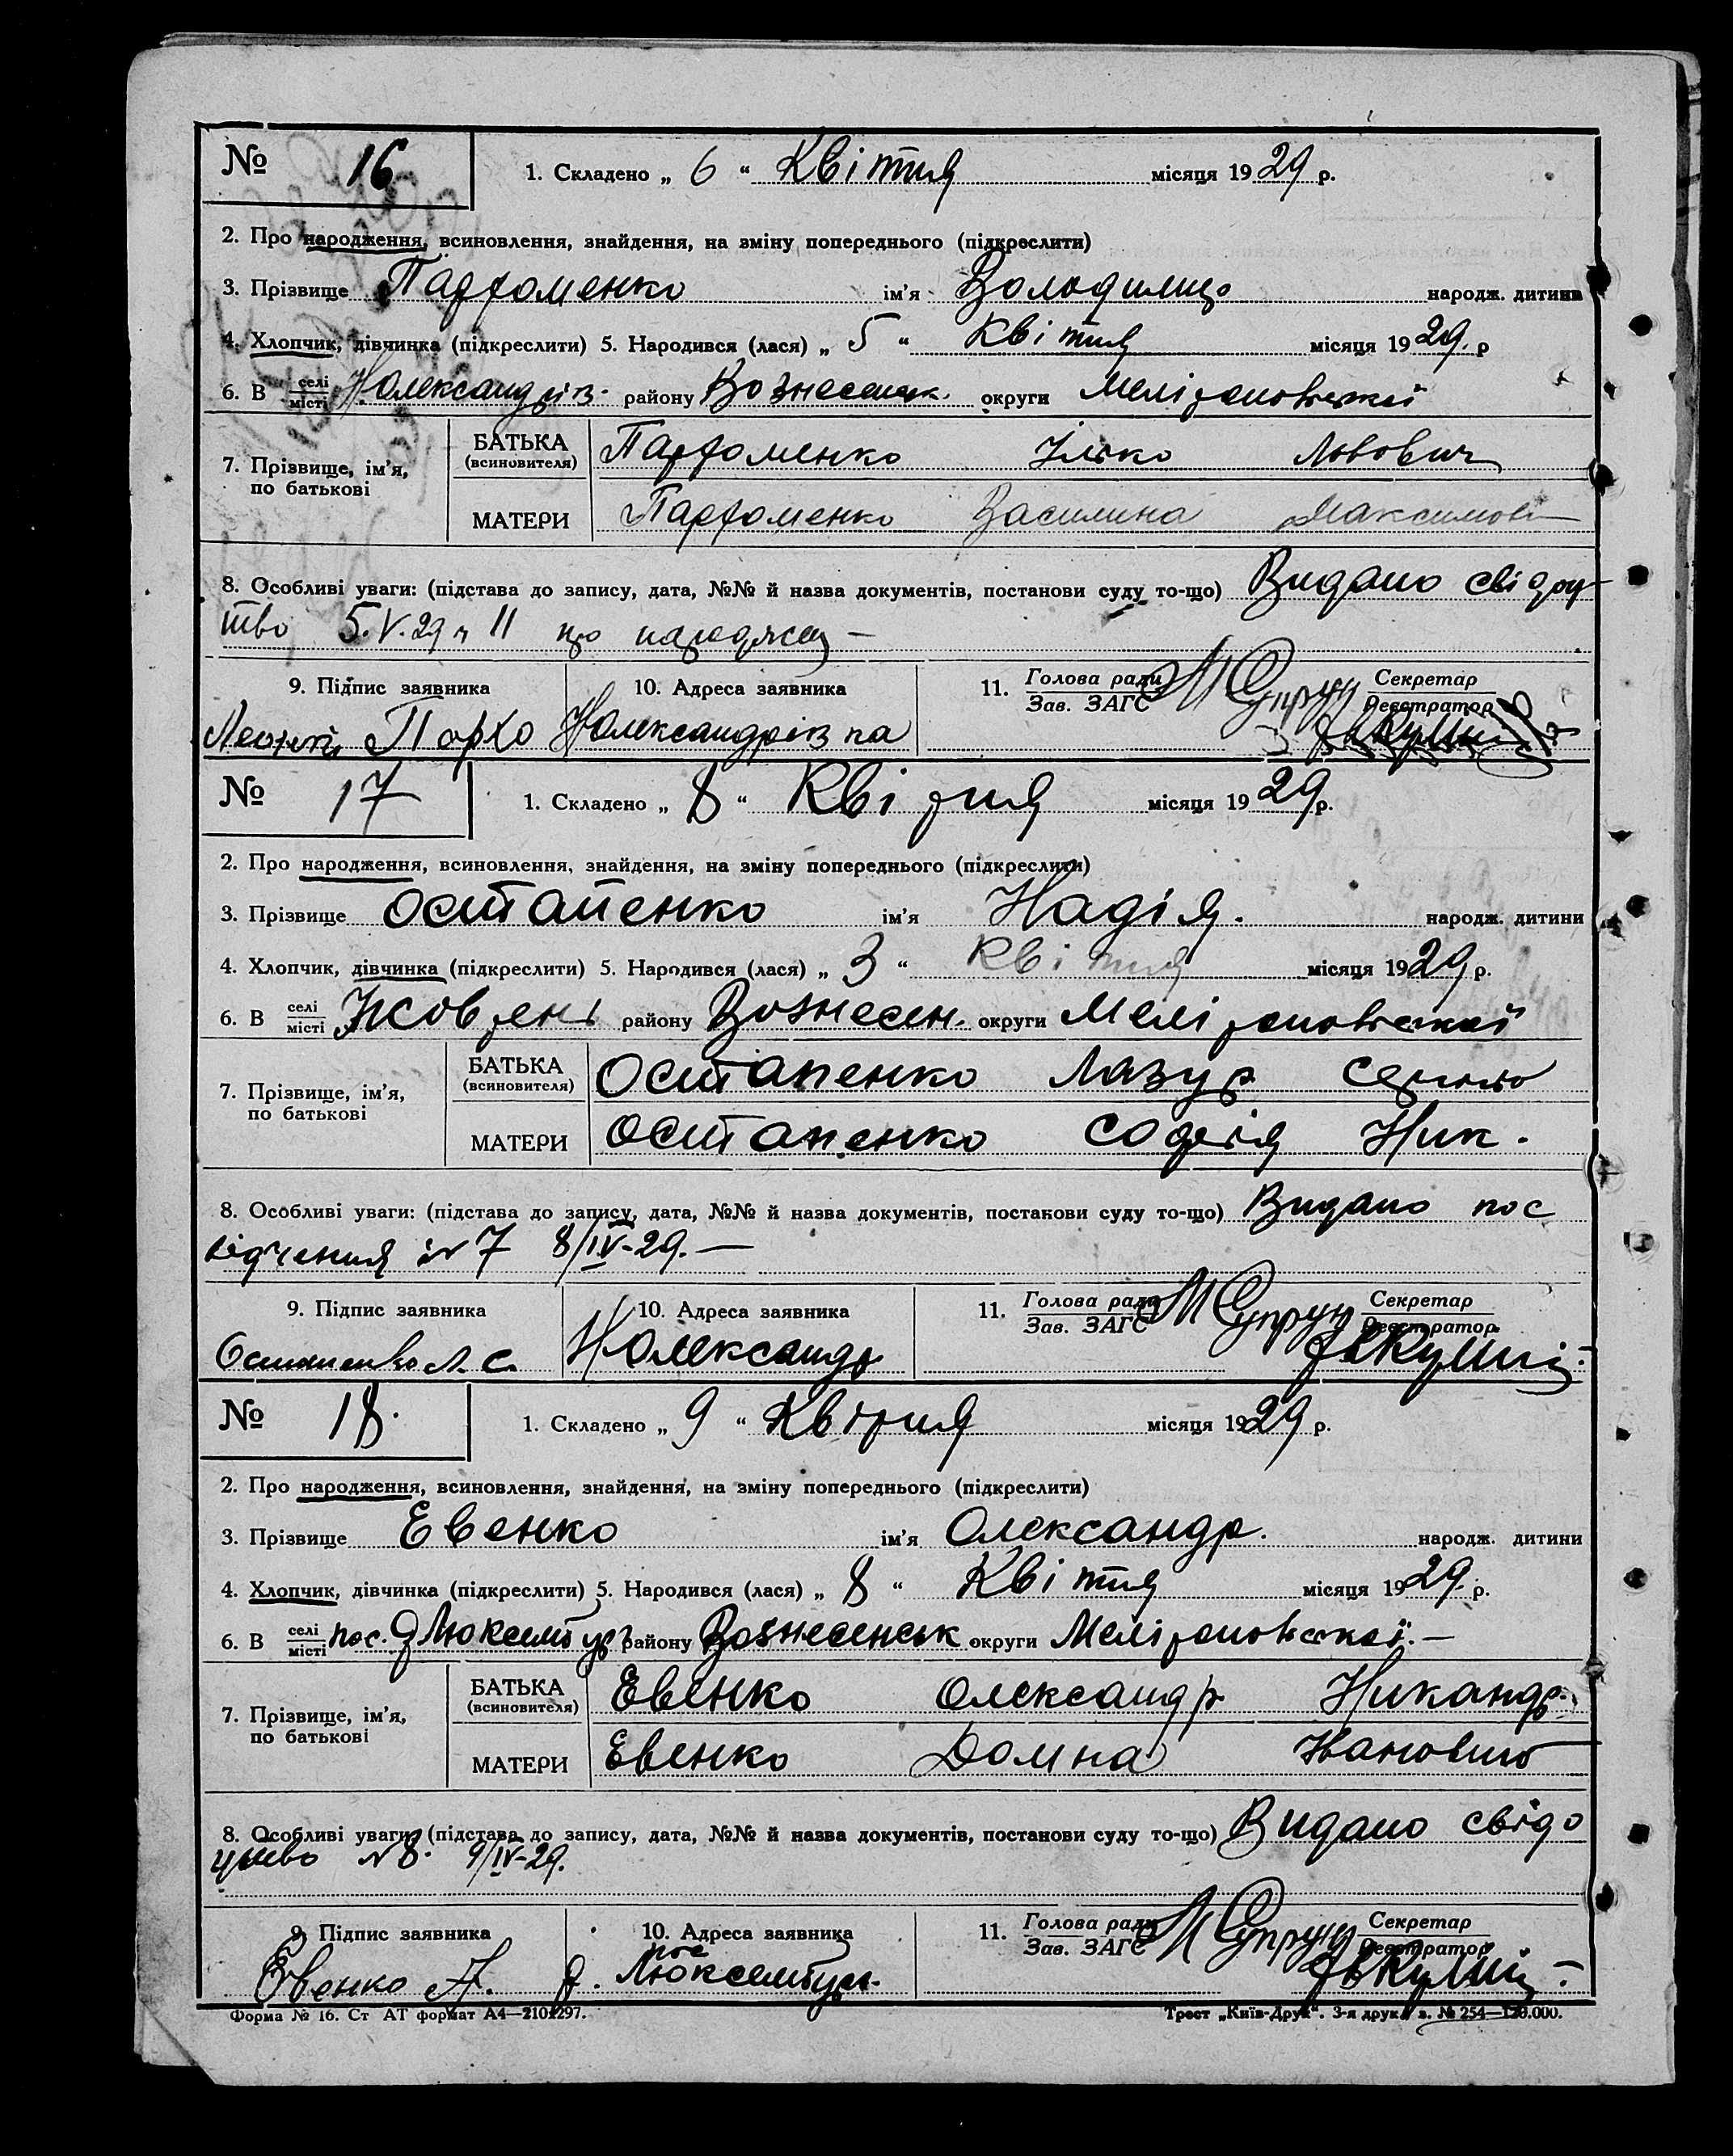 № 16 1. Складено „ 6 “ Квітня місяця 1929 р.
2. Про народження, всиновлення, знайдення, на зміну попереднього (підкреслити)
3. Прізвище Пархоменко ім’я Володимир народж. дитини
4. Хлопчик, дівчинка (підкреслити) 5. Народився (лася) „ 5 “ Квітня місяця 1929. р
6. В селі місті Н Олександрів. району Вознесенськ. округи Мелітопольської
7. Прізвище, ім’я, по батькові
БАТЬКА (всиновителя) Пархоменко Ілько Львович
МАТЕРИ Пархоменко Василина Максимов
8. Особливі уваги: (підстава до запису, дата, №№ й назва документів, постанови суду то-що) Видано свідоц-
тво 5.V.29 № 11 про народжен
9. Підпис заявника 10. Адреса заявника 11. Голова ради Зав. ЗАГС Секретар Реєстратор
Пархо Н Олександрівка М Супрун
№ 17 1. Складено „ 8 “ Квітня місяця 1929 р.
2. Про народження, всиновлення, знайдення, на зміну попереднього (підкреслити)
3. Прізвище Остапенко ім’я Надія. народж. дитини
4. Хлопчик, дівчинка (підкреслити) 5. Народився (лася) „ 3 “ Квітня місяця 1929 р.
6. В селі місті району Вознесен. округи Мелітопольської
7. Прізвище, ім’я, по батькові
БАТЬКА (всиновителя) Остапенко Лазур
МАТЕРИ Остапенко Софія Ник.
8. Особливі уваги: (підстава до запису, дата, №№ й назва документів, постанови суду то-що) Видано пос
відчення № 7 8/IV-29. —
9. Підпис заявника 10. Адреса заявника 11. Голова ради Зав. ЗАГС Секретар Реєстратор
Остапенко Л. С. Н Олександр М Супрун
№ 18. 1. Складено „ 9 “ Квітня місяця 1929 р.
2. Про народження, всиновлення, знайдення, на зміну попереднього (підкреслити)
3. Прізвище Евенко ім’я Олександр. народж. дитини
4. Хлопчик, дівчинка (підкреслити) 5. Народився (лася) „ 8 “ Квітня місяця 1929. р.
6. В селі місті пос. Р Люксембург району Вознесенськ округи Мелітопольської. —
7. Прізвище, ім’я, по батькові
БАТЬКА (всиновителя) Евенко Олександр Никандр.
МАТЕРИ Евенко Домна
8. Особливі уваги: (підстава до запису, дата, №№ й назва документів, постанови суду то-що) Видано свідо
цтво № 8. 9/IV-29.
9. Підпис заявника 10. Адреса заявника 11. Голова ради Зав. ЗАГС Секретар Реєстратор
Евенко А. пос Р. Люксембург. М Супрун
Форма № 16. Ст АТ формат А4—210×297. Трест „Київ-Друк“. 3-я друк. з. № 254—120.000.